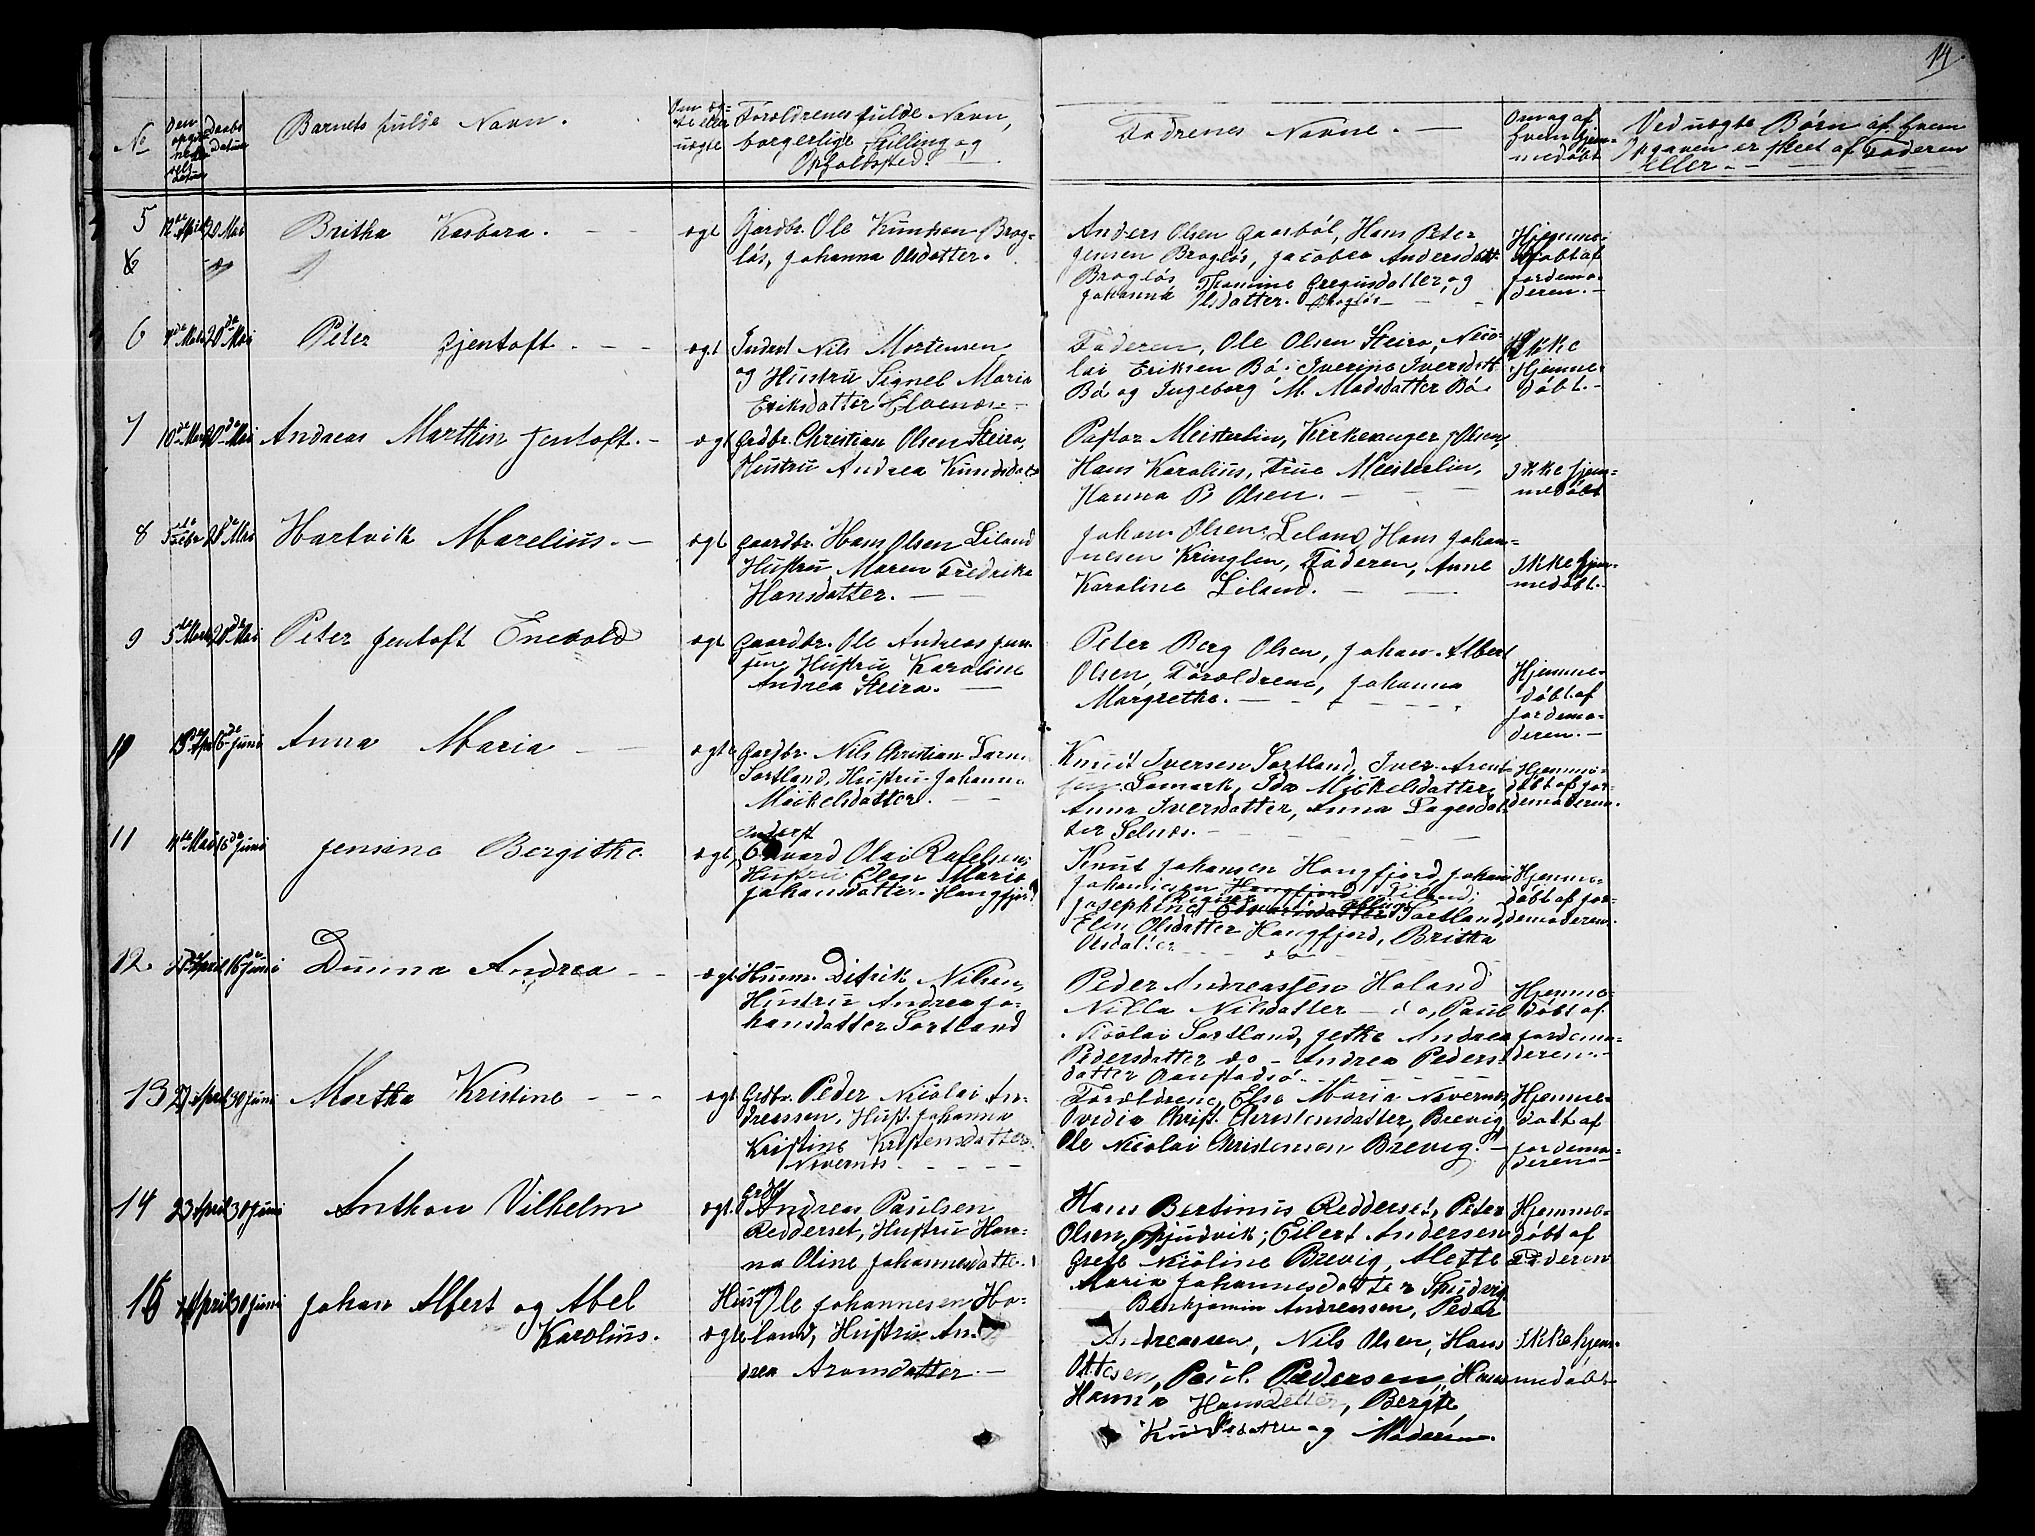 14.
№
Den opgivne Fødselsdatum
Daabsdatum
Barnets fulde Navn.
Om ægte eller uægte
Forældrenes fulde Navn,
borgerlige Stilling og
Opholdssted.
Fadrenes Navne. —
Om og af
hvem hjem-
medøbt
Ved uægte Børn af hvem
Opgaven er skeet af Faderen
eller —
5 12te April 20 Mai Britha Kasbara. — — ægt
Gardbr. Ole Knudsen Brog-
løs, Johanna Olsdatter.
Anders Olsen Gaasbøl, Hans Peter
Jensen Brogløs, Jacobea Andersdatt.
Brogløs Thomine Gregusdatter, og
Johanna Olsdatter. Brogløs —
Hjemme-
døbt af
Jordemo-
deren. —
6 Mai 20de Mai Peter Gjentoft. — — ægt
Inderst Nils Mortensen
og Hustru Signel Maria
Eriksdatter
Faderen, Ole Olsen Steiro, Nico-
lai Eriksen Bø. Iverine Iversdatt
Bø og Ingeborg M. Madsdatter Bø.
Ikke
Hjemme-
døbt. —
7 10de 20de Mai Andreas Marthin Jentoft. — ægt
Grdbr. Christian Olsen Steiro,
Hustru Andrea Knudsdat
Pastor Meisterlin, Kirkesanger J Olsen,
Hans Karolius, Frue Meisterlin,
Hanna P Olsen. —
Ikke hjem-
medøbt
8 28de Mai Hartvik Marelius. — ægt
Gaardbr. Hans Olsen Liland
Hustru Maren Fredrike
Hansdatter. —
Johan Olsen Liland, Hans Johan-
nesen Kringlen, Faderen, Anne
Karoline Liland. —
Ikke hjem-
medøbt. —
9 28de Mai Peter Jentoft Enevold ægt
Gaardbr. Ole Andreas Jen-
sen, Hustru Karoline
Andrea Steiro. —
Peter Berg Olsen, Johan Albert
Olsen, Forældrene, Johanna
Margrethe. —
Hjemme-
døbt af
Jordemo-
deren. —
10 6de Juni Anna Maria — ægt
Gardbr. Nils Christian
Sortland, Hustru Johann.
Mickelsdatter. —
Knud Iversen Sortland, Iver Arent-
sen Lamark, Ida Mickelsdatter
Anna Iversdatter, Anna
ter Selnæs. —
Hjemme-
døbt af Jor-
demoderen.
11 4de Mai 16de Juni Jensine Bergithe ægt
Inderst
Edvard Olai Rafelsen,
Hustru Elen Maria
Johansdatter. Hougfjord
Knut Johansen Hougfjord, Johan
Johannesen Hougfjord
Josephine Sortland,
Elen Olsdatter Hougfjord, Britha
Olsdatter — do —
Hjemme-
døbt af Jor-
demoderen.
12. April 16de Juni Dunna Andrea — — ægt.
Husm. Ditrik Nilsen,
Hustru Andrea Jo-
hansdatter Sortland
Peder Andreassen Holand
Nilla Nilsdatter — do, Paul
Nicolai Sortland, Jethe Andrea
Pedersdatter do — Andrea Peders-
datter
Hjemme-
døbt af
Jordemo-
deren. —
13 27 April 30 Juni Martha Kristine — — ægt
Grdbr. Peder Nicolai An-
dreassen, Hust. Johanna
Kristine Kristensdatter
Nævernes —
Forældrene, Else Maria Nævernes,
Ovedia Christ. Christensdatter Brevig,
Ole Nicolai Christensen Brevig. —
Hjemme-
døbt af
Jordemo-
deren —
14 23 April 30 Juni Anthon Vilhelm ægt.
Grdb
Andreas Paulsen
Redderset, Hustru Han-
na Oline Johannesdatte.
Hans Bertinus Redderset, Peter
Olsen, Spjudvik; Eilert Andersen
Grete Nicoline Brevig, Alette
Maria Johannesdatter
Hjemme-
døbt af
Faderen
15 April 30 Juni Johan Albert og Abel
Karolius.
ægte
Husm. Ole Johannesen Ho-
land, Hustru An-
drea Aronsdatter. —
Benhjamin Andreasen, Peder
Andreassen, Nils Olsen, Hans
Ottesen, Paul Pedersen, Hans
Hanna Hansdatter, Bergte
Knudsdatter og Moderen.
Ikke hjem-
medøbt